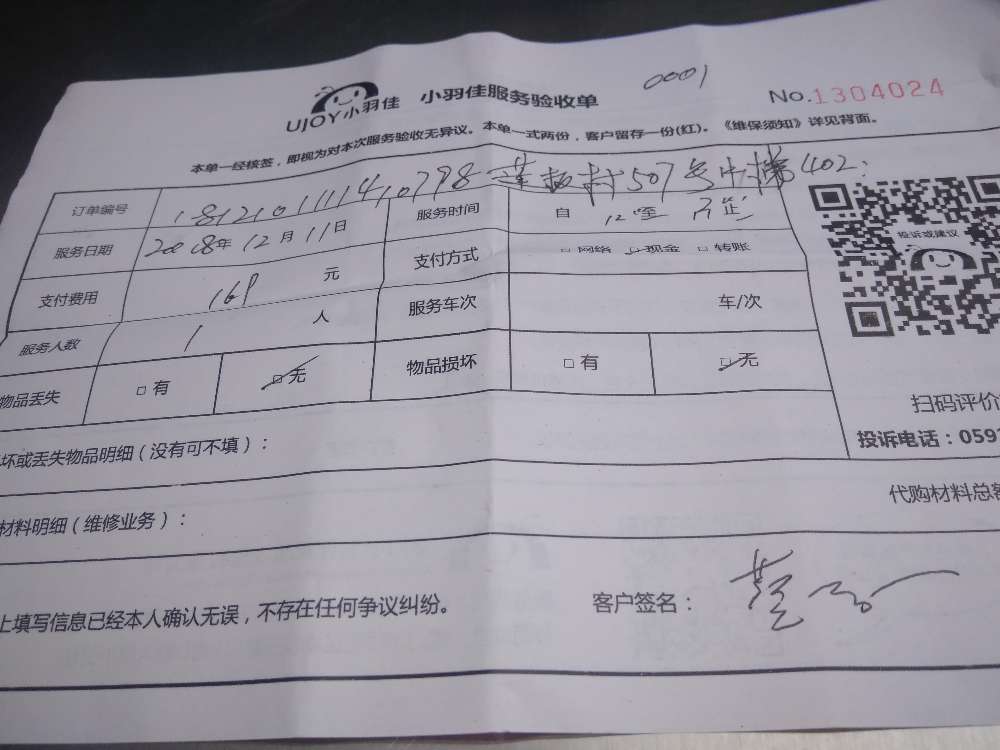 UJOY小羽佳 小羽佳服务验收单 0001 No.1304024
本单一经核签，即视为对本次服务验收无异议。本单一式两份，客户留存一份(红)。《维保须知》详见背面。
订单编号 507 402
服务日期 2018年12月11日 服务时间 自 12 至
支付费用 169 元 支付方式 □网络 □现金 □转账
服务人数 1 人 服务车次 车/次
物品丢失 □有 □无 物品损坏 □有 □无
坏或丢失物品明细（没有可不填）：
材料明细（维修业务）：
上填写信息已经本人确认无误，不存在任何争议纠纷。 客户签名：
投诉或建议
扫码评价
投诉电话：059
代购材料总